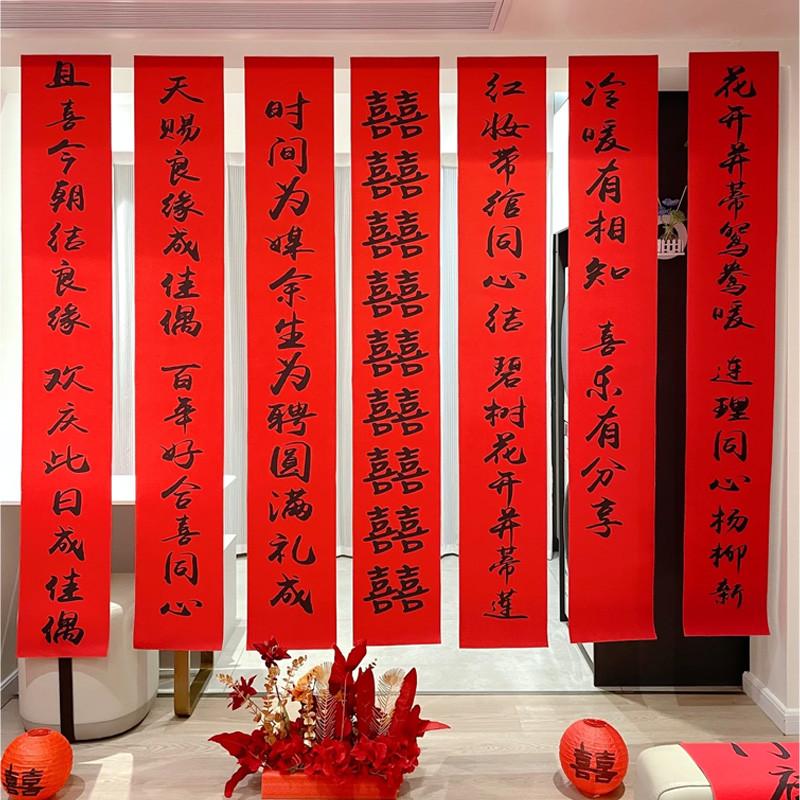 且喜今朝结良缘 欢庆此日成佳偶
天赐良缘成佳偶 百年好合喜同心
时间为媒余生为聘圆满礼成
囍囍囍囍囍囍囍囍囍
红妆带绾同心结 碧树花开并蒂莲
冷暖有相知 喜乐有分享
花开并蒂鸳鸯暖 连理同心杨柳新
囍
囍